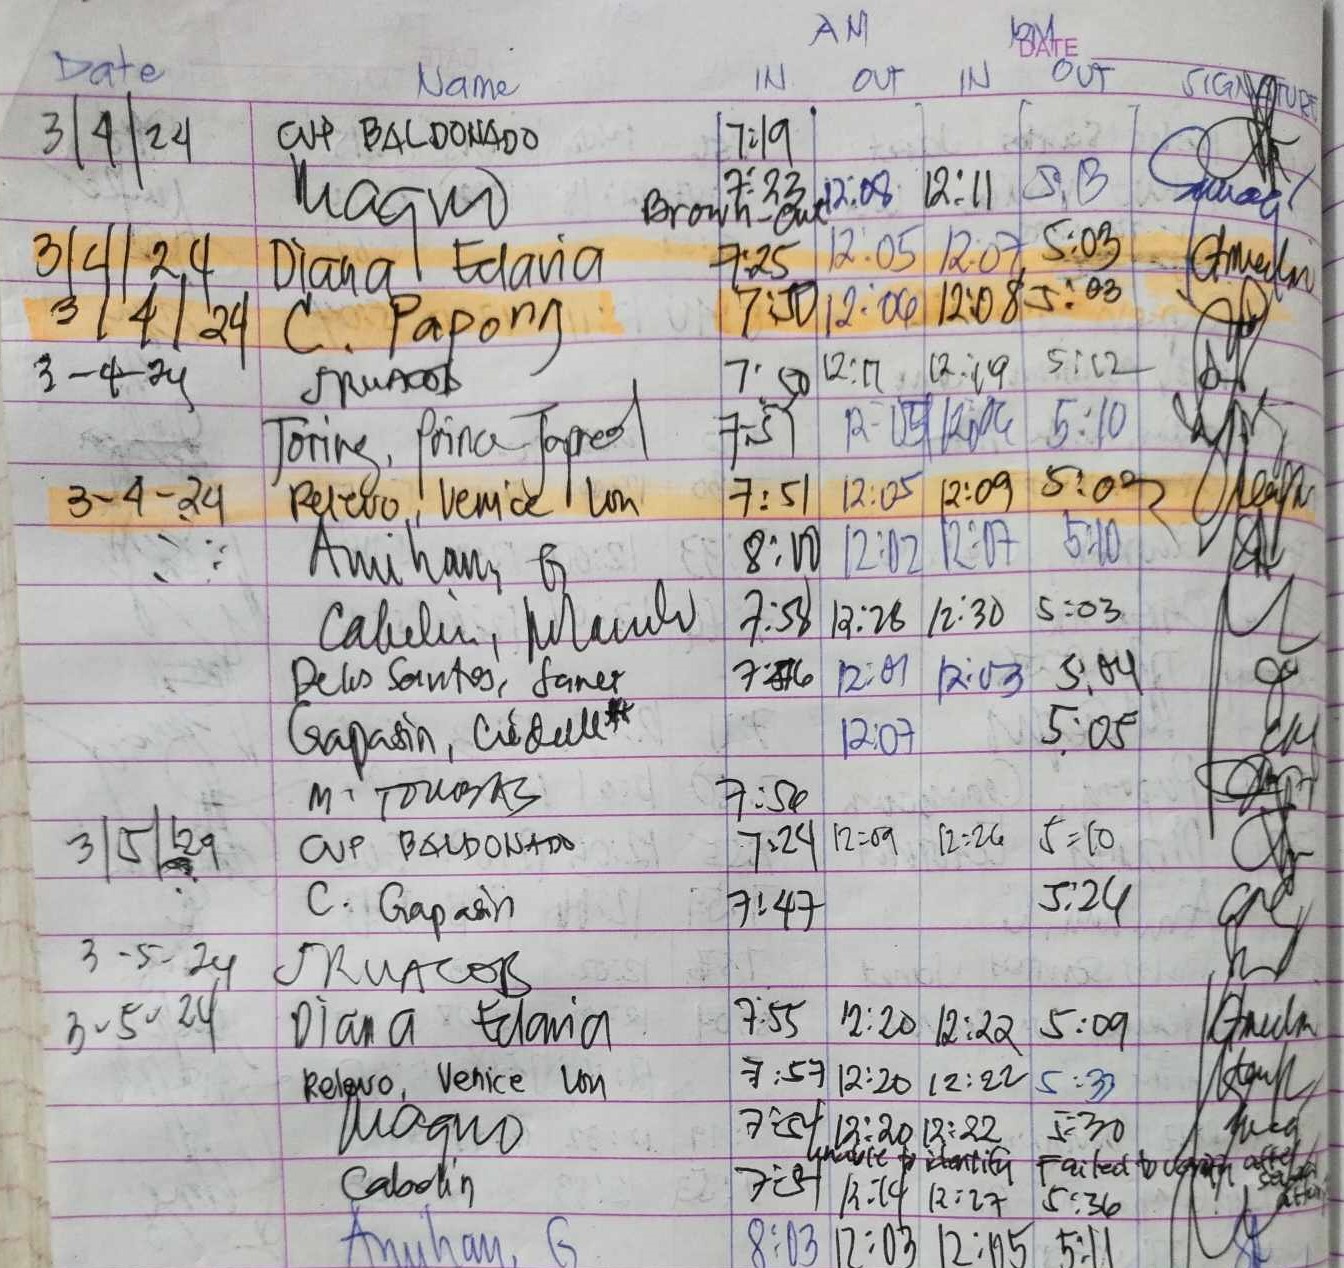 AM PM
DATE
Date Name IN OUT IN OUT SIGNATURE
3/4/24 CVP BALDONADO 7:19
Magno 7:23 12:08 12:11 5:13
Brown-out
3/4/24 Diana Edavia 7:25 12:05 12:07 5:03
3/4/24 C. Papong 7:50 12:06 12:08 5:03
3-4-24 JRUACOB 7:50 12:17 12:19 5:12
Toring, Prince 7:51 12:05 12:06 5:10
3-4-24 Relevo, Venice Von 7:51 12:05 12:09 5:02
Anihan, G 8:00 12:02 12:07 5:10
Cabelin, 7:58 12:28 12:30 5:03
Delos Santos, Janer 12:01 12:03 5:04
Gapasin, 12:07 5:05
M. 7:56
3/5/24 CVP BALDONADO 7:24 12:09 12:26 5:10
C. Gapasin 7:47 5:24
3-5-24 JRUACOB
3-5-24 Diana Edavia 7:55 12:20 12:22 5:09
Relevo, Venice Von 7:57 12:20 12:22 5:33
Magno 7:54 12:20 12:22 5:30
unable to identify Failed to after
Cabelin 7:51 12:14 12:27 5:36
Anihan, G 8:03 12:03 12:05 5:11